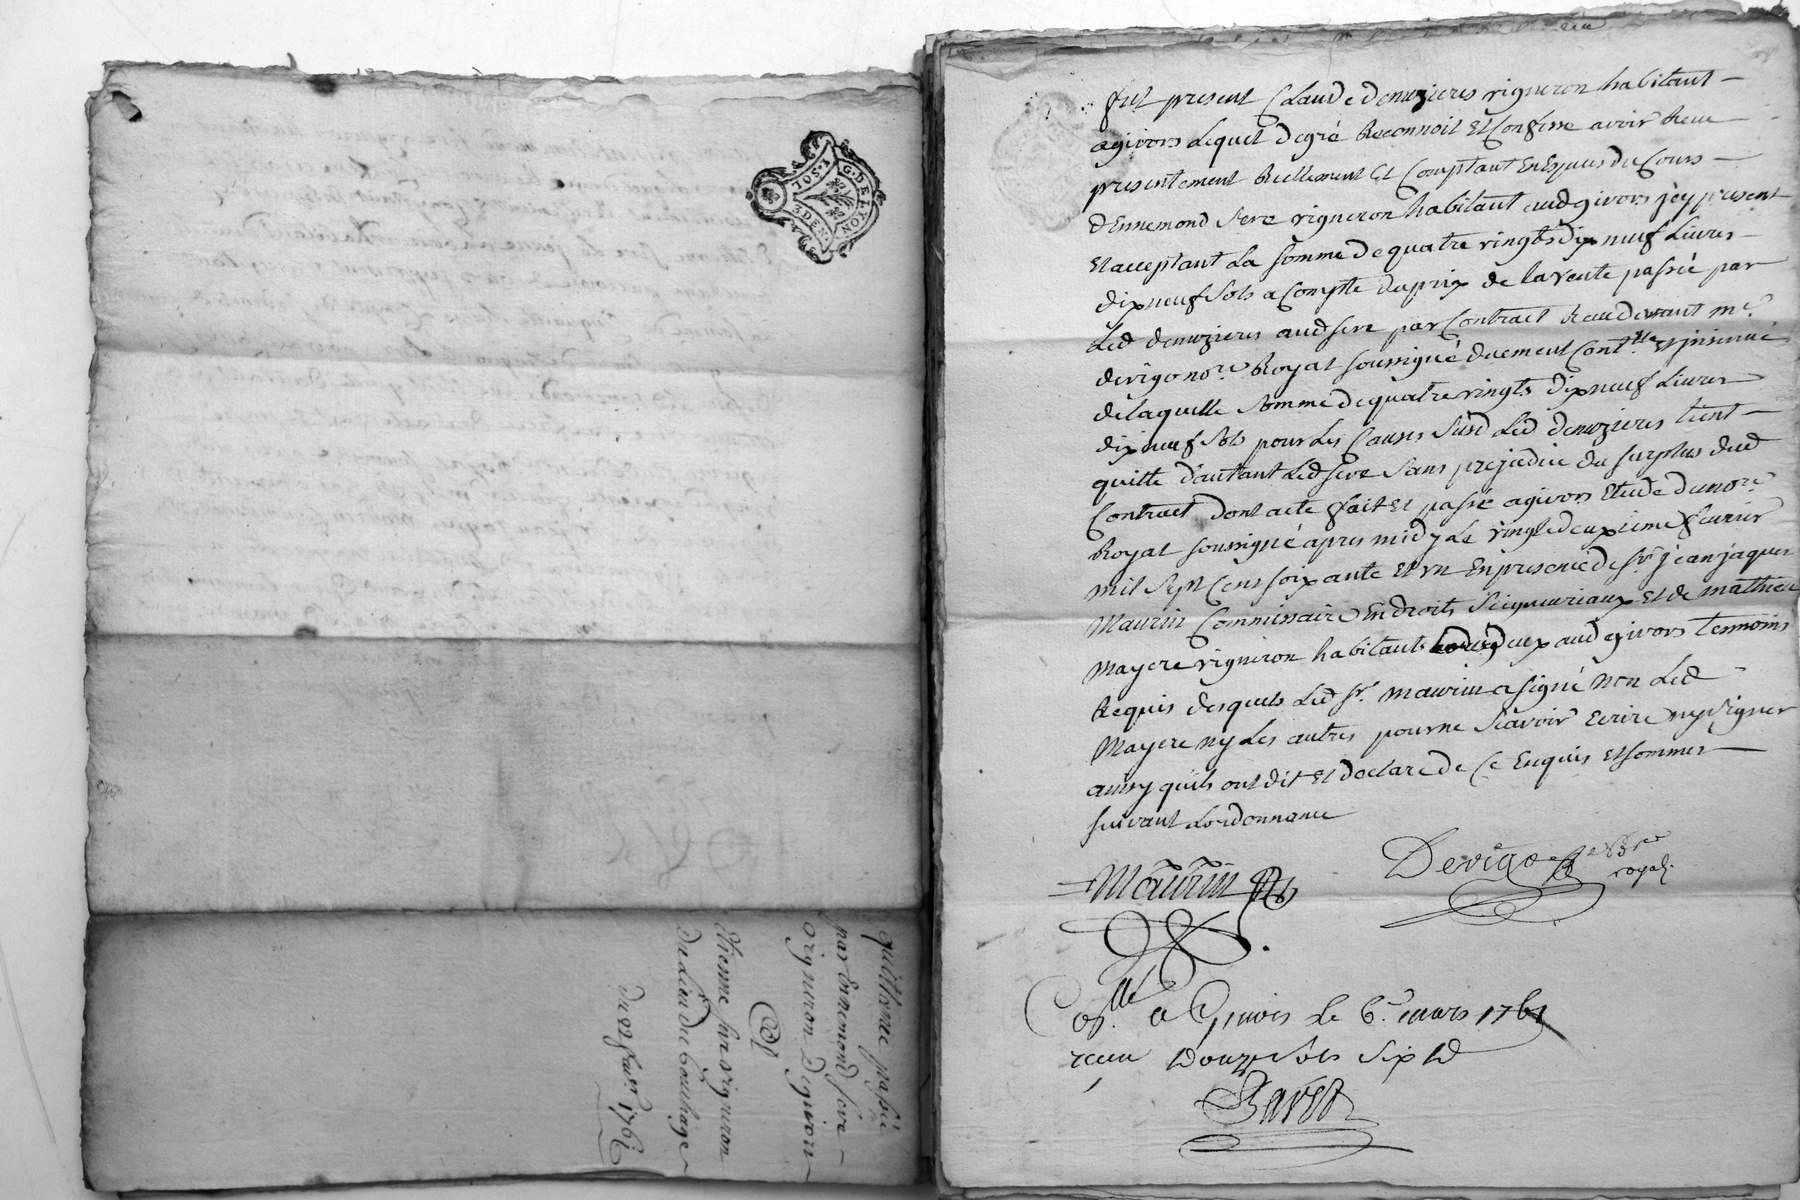 G. DE LYON
1. SOL
3 DEN.
quittance passée
par Ennemond Sere
vigneron Degivors
Etienne Sere vigneron
Du Lieu de
Du 22 fevr. 1761
fut present Claude denuzieres vigneron habitant
agivors Lequel degré Reconnoit Et Confesse avoir Receu
presentement Reellement Et Comptant En Especes du Cours
d'Ennemond Sere vigneron habitant aud givors jcy present
Et acceptant La somme de quatre vingts dix neuf Livres
dix neuf Sols a Compte du prix de la vente passée par
Led denuzieres aud Sere par Contract Receu devant me.
devigo nore. Royal soussigné duement Contlle. Et jnsinué
de laquelle somme de quatre vingts dix neuf Livres
dix neuf Sols pour Les Causes Susd Led denuzieres tient
quitte d'autant Led Sere Sans prejudice du surplus dud
Contract dont acte fait Et passé agivors Etude dunore.
Royal soussigné apres midy Le vingtdeuxieme fevrier
mil Sept Cens soixante Et un En presence de Sr. jean jaques
Maurin Commissaire En droits Seigneuriaux Et de mathieu
Mayere vigneron habitants deux aud givors temoins
Requis desquels Led Sr. Maurin a signé non Led
Mayere ny Les autres pour ne Scavoir Ecrire ny Signer
ainsy qu'ils ont dit Et declaré de Ce Enquis Et sommes
suivant Lordonnance
Maurin
Devigo
royal.
Conlle. a Givors Le 6e. mars 1761
receu Douze Sols Six d